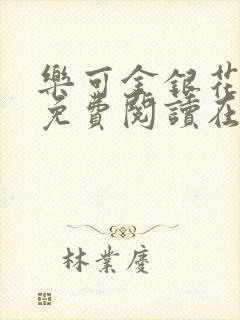 樂可金銀花
免費閱讀在
林業慶